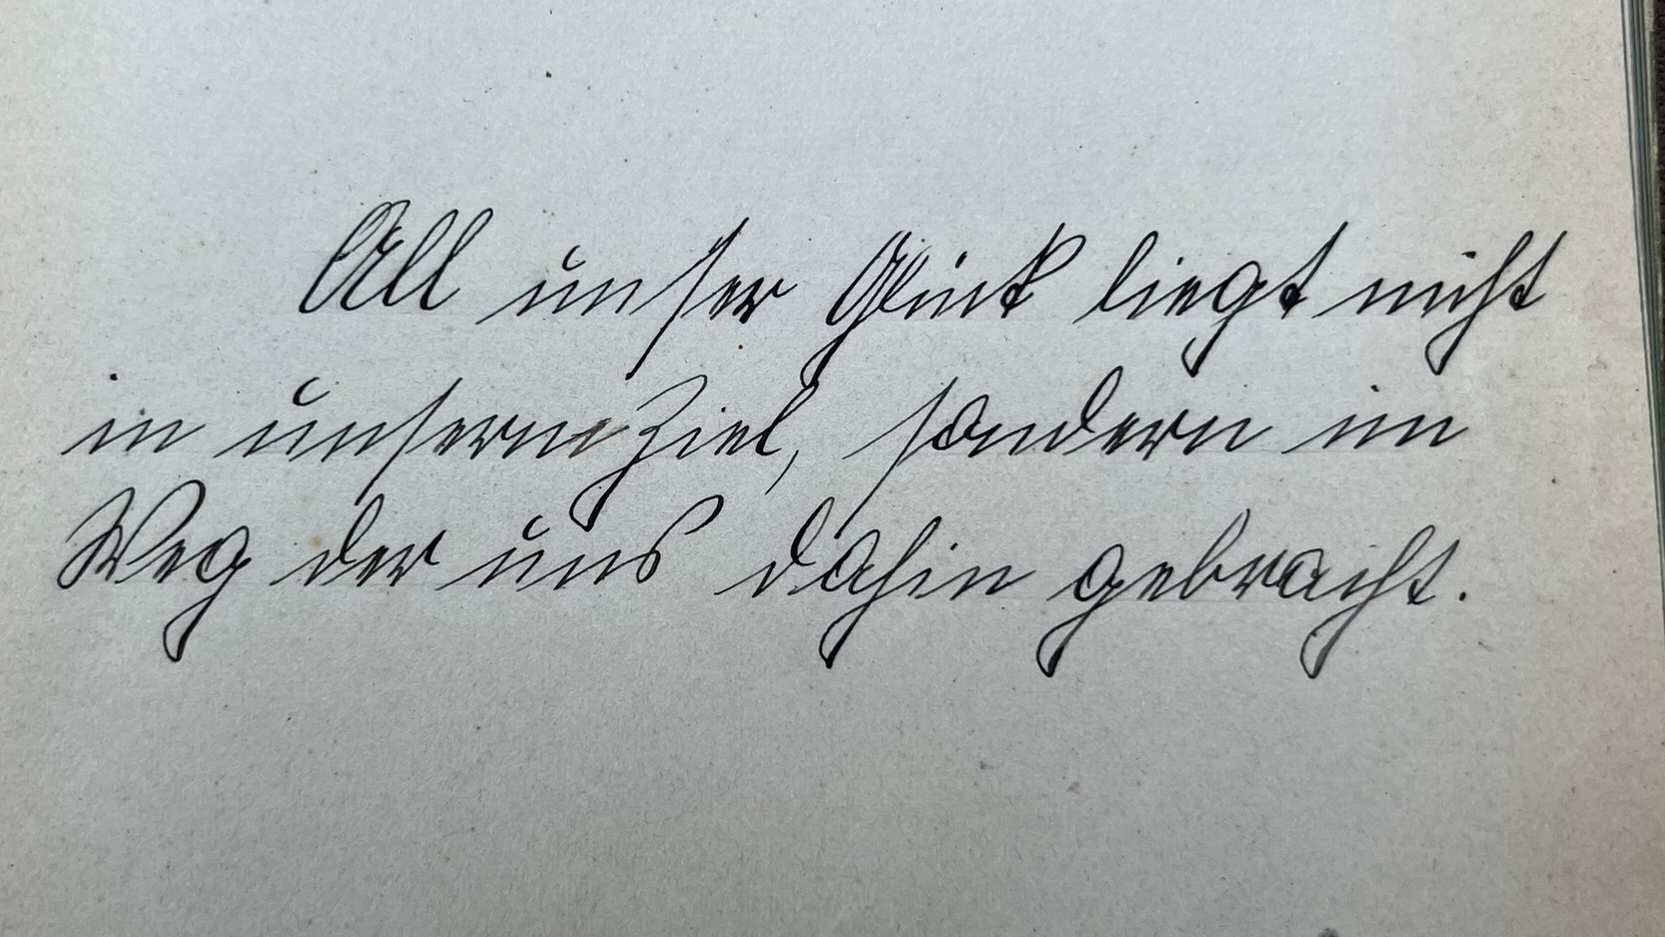 All unser Glück liegt nicht
in unserm Ziel, sondern im
Weg der uns dahin gebracht.